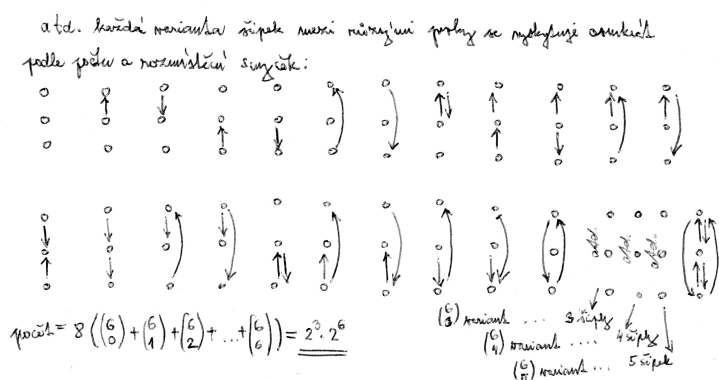 atd. každá varianta šipek mezi různými prvky se vyskytuje osmkrát
podle počtu a rozmístění smyček:
atd. atd. atd.
počet = 8 ((6 0) + (6 1) + (6 2) + ... + (6 6)) = 2³ · 2⁶
(6 3) variant ... 3 šipky
(6 4) variant ... 4 šipky
(6 5) variant ... 5 šipek